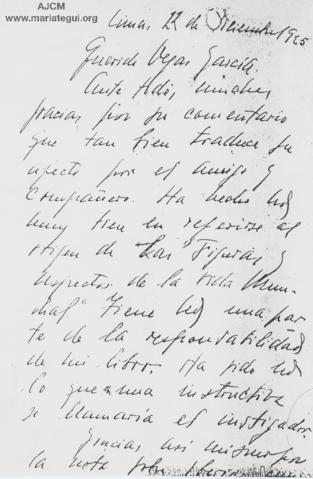 AJCM
www.mariategui.org
Lima, 22 de Diciembre 1925
Querido Vegas García:
Ante todo, muchas
gracias por su comentario
que tan bien traduce su
afecto por el amigo y
compañero. Ha hecho Ud
muy bien en referirse al
origen de "Las Figuras y
aspectos de la vida Mun-
dial" Tiene Ud una par
te de la responsabilidad
de mi libro. Ha sido Ud
lo que una instructiva
se llamaría el instigador.
Gracias, así mismo, por
la nota sobre